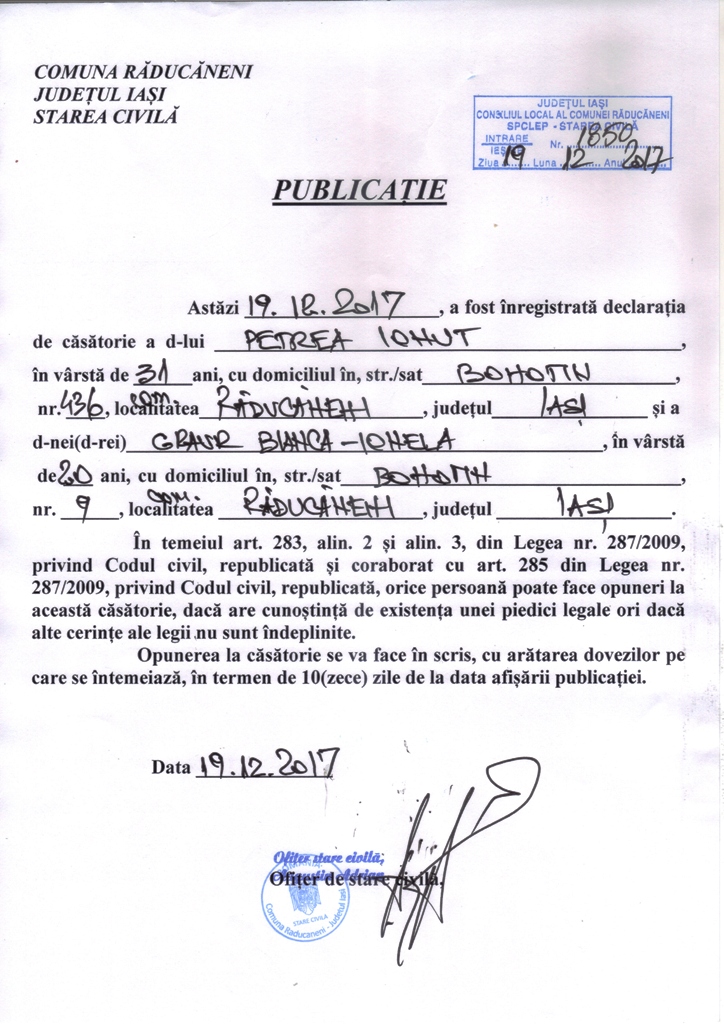 COMUNA RĂDUCĂNENI
JUDEȚUL IAȘI
STAREA CIVILĂ
JUDEŢUL IAŞI
CONSILIUL LOCAL AL COMUNEI RĂDUCĂNENI
SPCLEP - STAREA CIVILĂ
INTRARE
IEȘIRE Nr. 1850
Ziua 19 Luna 12 Anul 2017
PUBLICAȚIE
Astăzi 19.12.2017, a fost înregistrată declarația
de căsătorie a d-lui PETREA IONUT,
în vârstă de 31 ani, cu domiciliul în, str./sat BOHOTIN,
nr. 436, localitatea com. RĂDUCĂNENI, județul IAȘI și a
d-nei(d-rei) GRAUR BIANCA-IONELA, în vârstă
de 20 ani, cu domiciliul în, str./sat BOHOTIN,
nr. 9, localitatea com. RĂDUCĂNENI, județul IAȘI.
În temeiul art. 283, alin. 2 și alin. 3, din Legea nr. 287/2009,
privind Codul civil, republicată și coraborat cu art. 285 din Legea nr.
287/2009, privind Codul civil, republicată, orice persoană poate face opuneri la
această căsătorie, dacă are cunoștință de existența unei piedici legale ori dacă
alte cerințe ale legii nu sunt îndeplinite.
Opunerea la căsătorie se va face în scris, cu arătarea dovezilor pe
care se întemeiază, în termen de 10(zece) zile de la data afișării publicației.
Data 19.12.2017
Ofiter stare civilă,
Adrian
Ofițer de stare civilă,
ROMANIA
STARE CIVILA
Comuna Raducaneni - Judetul Iasi